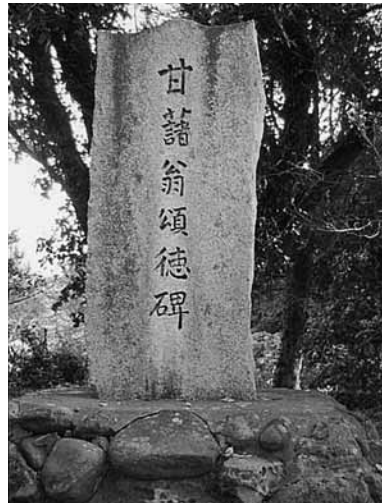 甘藷翁頌徳碑